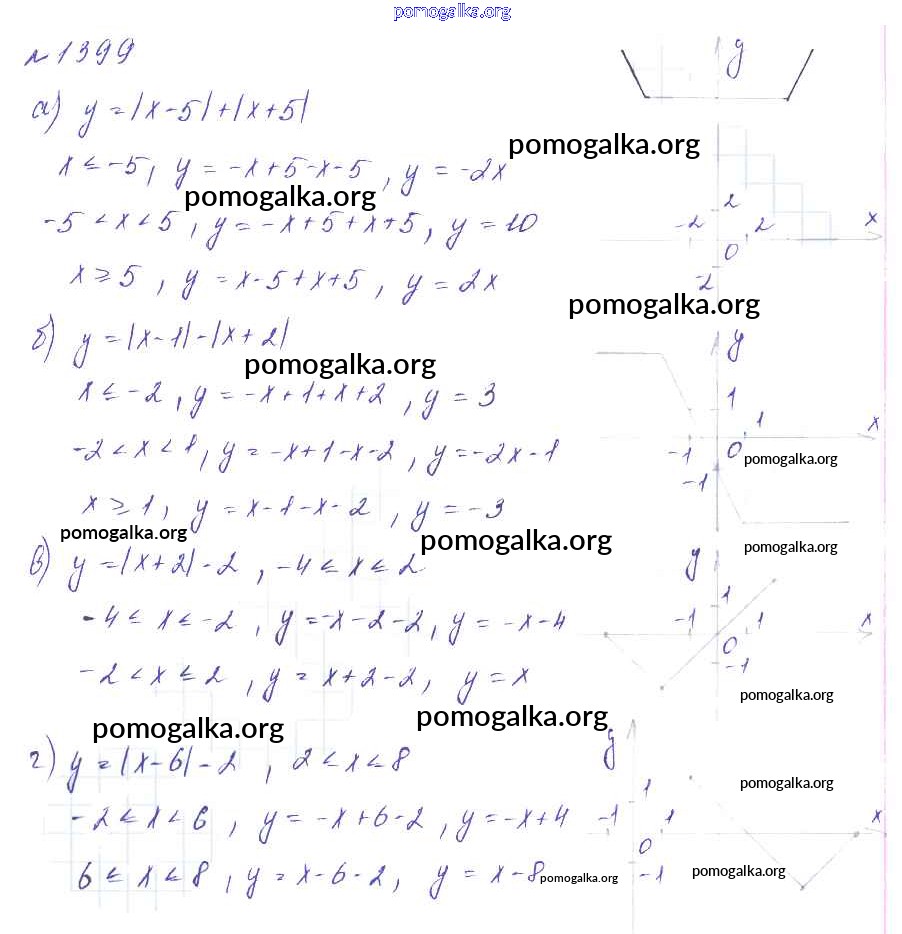 pomogalka.org
№1399
а) y = |x-5|+|x+5|
x ≤ -5, y = -x+5-x-5, y = -2x
pomogalka.org
pomogalka.org
-5 < x < 5, y = -x+5+x+5, y = 10
x ≥ 5, y = x-5+x+5, y = 2x
pomogalka.org
б) y = |x-1|-|x+2|
pomogalka.org
x ≤ -2, y = -x+1+x+2, y = 3
-2 < x < 1, y = -x+1-x-2, y = -2x-1
pomogalka.org
x ≥ 1, y = x-1-x-2, y = -3
pomogalka.org
pomogalka.org
pomogalka.org
в) y = |x+2|-2, -4 ≤ x ≤ 2
-4 ≤ x ≤ -2, y = -x-2-2, y = -x-4
-2 < x ≤ 2, y = x+2-2, y = x
pomogalka.org
pomogalka.org
pomogalka.org
г) y = |x-6|-2, 2 < x < 8
pomogalka.org
-2 ≤ x < 6, y = -x+6-2, y = -x+4
6 ≤ x < 8, y = x-6-2, y = x-8
pomogalka.org
pomogalka.org
y
2
x
-2
2
0
-2
y
1
1
x
-1
0
-1
y
1
-1
1
x
0
-1
y
1
-1
1
x
0
-1